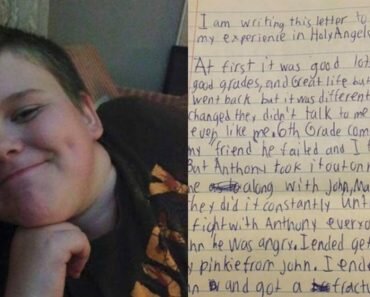 I am writing this letter to
my experience in Holy Angels
At first it was good lot
good grades, and Great life but
went back but it was different
changed they didn't talk to me
even like me. 6th Grade com
my friend he failed and I
But Anthony took it out on
me along with John, Ma
they did it constantly unt
fight with Anthony everyo
he was angry. I ended get
pinkie from john. I end
and got a fractu